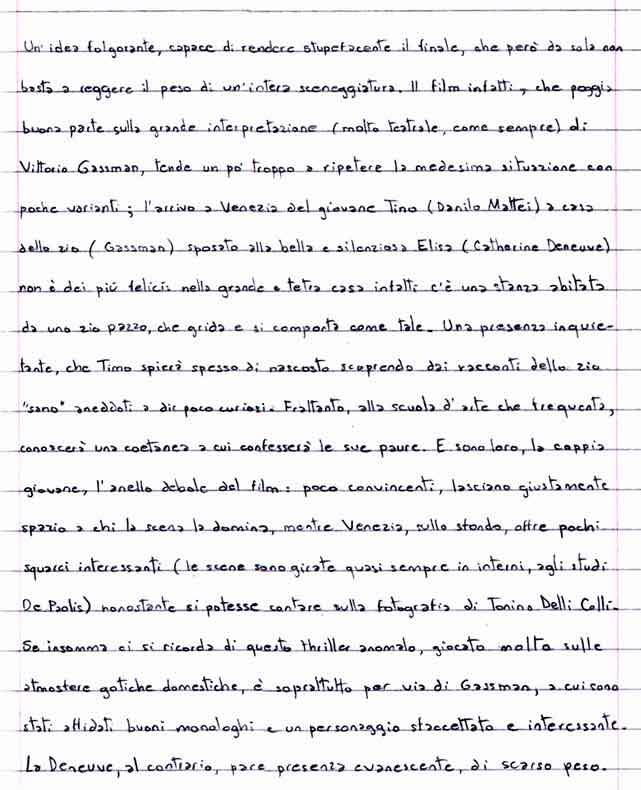 Un'idea folgorante, capace di rendere stupefacente il finale, che però da sola non
basta a reggere il peso di un'intera sceneggiatura. Il film infatti, che poggia
buona parte sulla grande interpretazione (molto teatrale, come sempre) di
Vittorio Gassman, tende un po' troppo a ripetere la medesima situazione con
poche varianti; l'arrivo a Venezia del giovane Tino (Danilo Mattei) a casa
dello zio (Gassman) sposato alla bella e silenziosa Elisa (Catherine Deneuve)
non è dei più felici: nella grande e tetra casa infatti c'è una stanza abitata
da uno zio pazzo, che grida e si comporta come tale. Una presenza inquie-
tante, che Timo spierà spesso di nascosto scoprendo dai racconti dello zio
"sano" aneddoti a dir poco curiosi. Frattanto, alla scuola d'arte che frequenta,
conoscerà una coetanea a cui confesserà le sue paure. E sono loro, la coppia
giovane, l'anello debole del film: poco convincenti, lasciano giustamente
spazio a chi la scena la domina, mentre Venezia, sullo sfondo, offre pochi
squarci interessanti (le scene sono girate quasi sempre in interni, agli studi
De Paolis) nonostante si potesse contare sulla fotografia di Tonino Delli Colli.
Se insomma ci si ricorda di questo thriller anomalo, giocato molto sulle
atmosfere gotiche domestiche, è soprattutto per via di Gassman, a cui sono
stati affidati buoni monologhi e un personaggio sfaccettato e interessante.
La Deneuve, al contrario, pare presenza evanescente, di scarso peso.